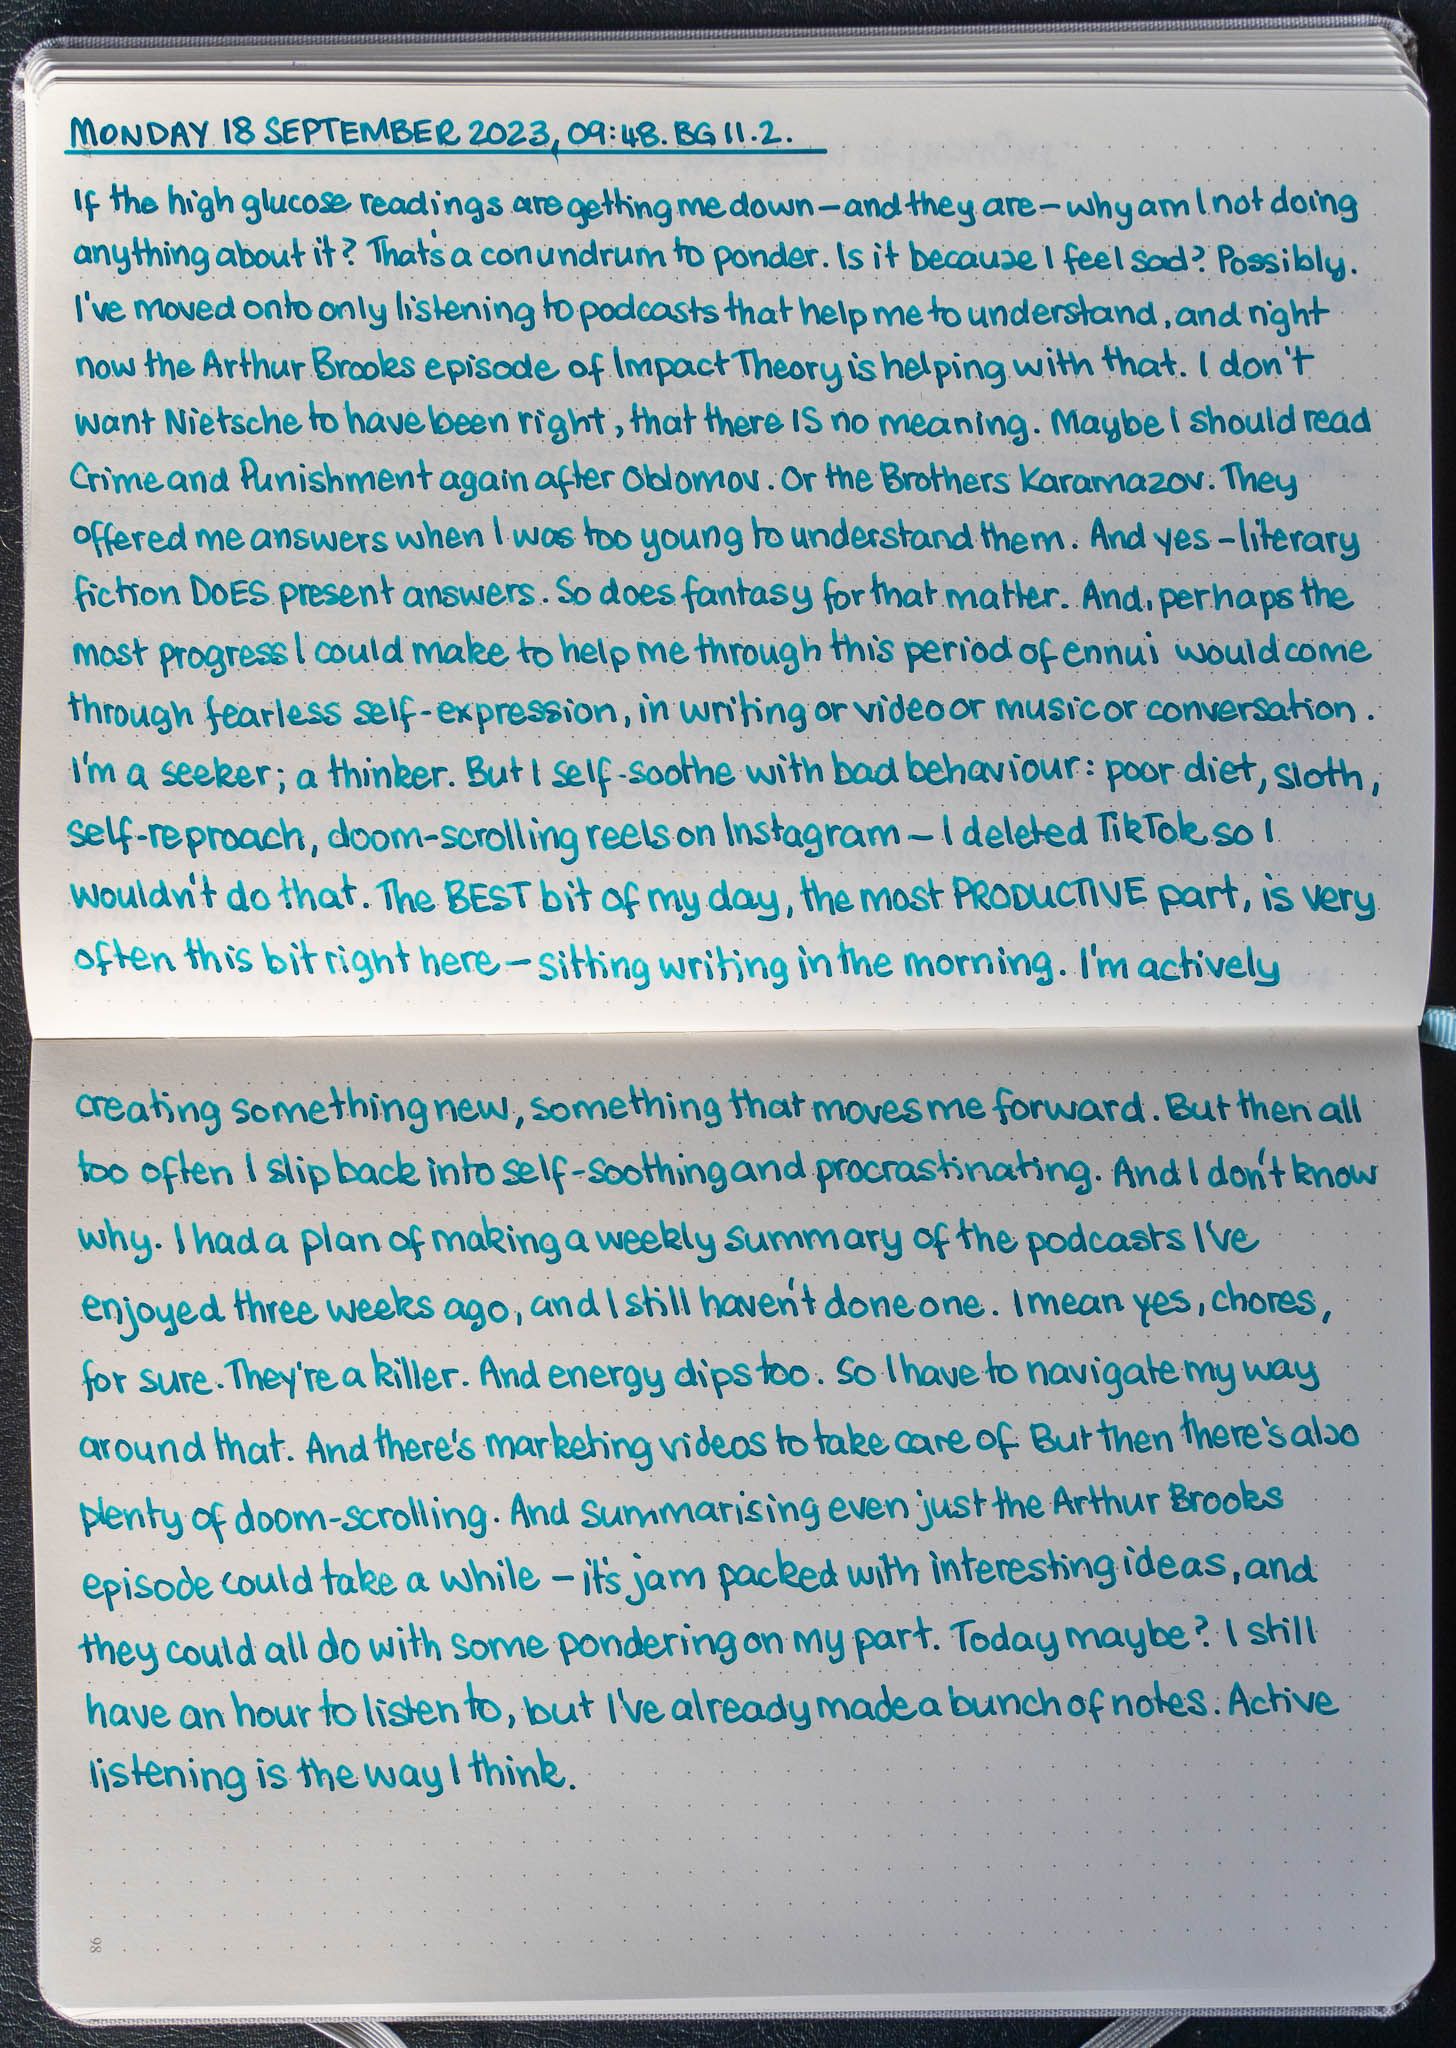 MONDAY 18 SEPTEMBER 2023, 09:48. BG 11.2.
If the high glucose readings are getting me down – and they are – why am I not doing
anything about it? That's a conundrum to ponder. Is it because I feel sad? Possibly.
I've moved onto only listening to podcasts that help me to understand, and right
now the Arthur Brooks episode of Impact Theory is helping with that. I don't
want Nietsche to have been right, that there IS no meaning. Maybe I should read
Crime and Punishment again after Oblomov. Or the Brothers Karamazov. They
offered me answers when I was too young to understand them. And yes – literary
fiction DOES present answers. So does fantasy for that matter. And, perhaps the
most progress I could make to help me through this period of ennui would come
through fearless self-expression, in writing or video or music or conversation.
I'm a seeker; a thinker. But I self-soothe with bad behaviour: poor diet, sloth,
self-reproach, doom-scrolling reels on Instagram – I deleted TikTok so I
wouldn't do that. The BEST bit of my day, the most PRODUCTIVE part, is very
often this bit right here – sitting writing in the morning. I'm actively
creating something new, something that moves me forward. But then all
too often I slip back into self-soothing and procrastinating. And I don't know
why. I had a plan of making a weekly summary of the podcasts I've
enjoyed three weeks ago, and I still haven't done one. I mean yes, chores,
for sure. They're a killer. And energy dips too. So I have to navigate my way
around that. And there's marketing videos to take care of. But then there's also
plenty of doom-scrolling. And summarising even just the Arthur Brooks
episode could take a while – it's jam packed with interesting ideas, and
they could all do with some pondering on my part. Today maybe? I still
have an hour to listen to, but I've already made a bunch of notes. Active
listening is the way I think.
98